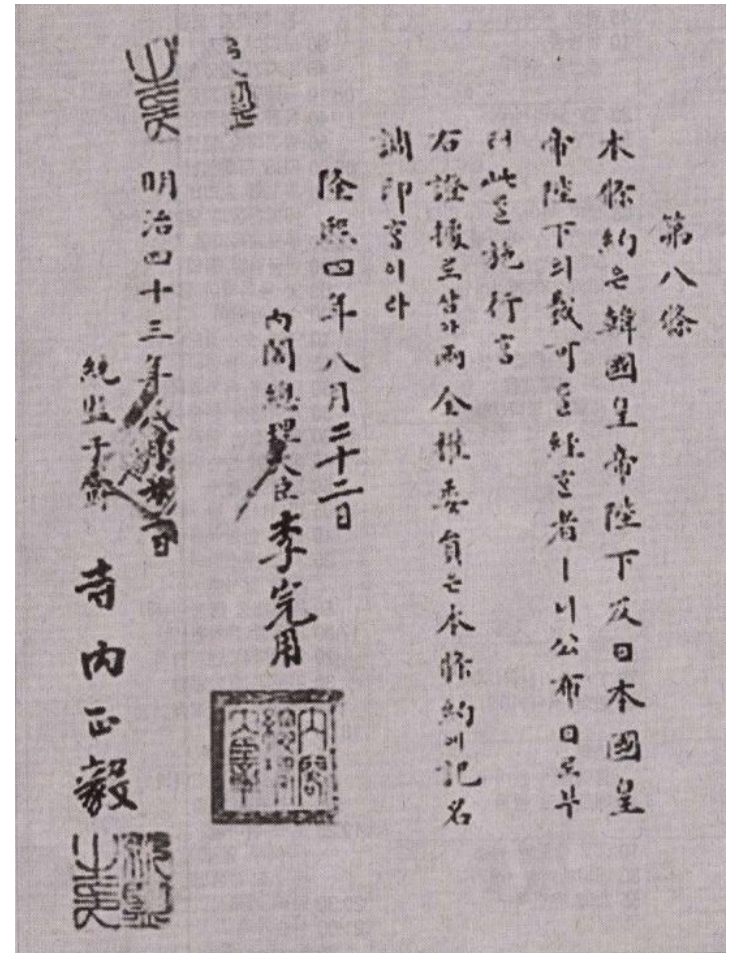 第八條
本條約은韓國皇帝陛下及日本國皇
帝陛下의裁可를經한者ㅣ니公布日로부
터此를施行홈
右證據로삼아兩全權委員은本條約에記名
調印홈이라
隆熙四年八月二十二日
內閣總理大臣 李完用
內閣總理大臣章
明治四十三年八月廿二日
統監子爵 寺內正毅
統監之印